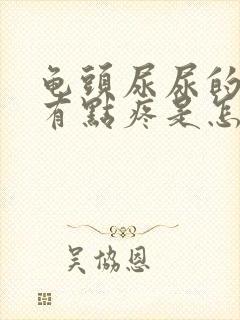 龟頭尿尿的
有點疼是怎
吴協恩